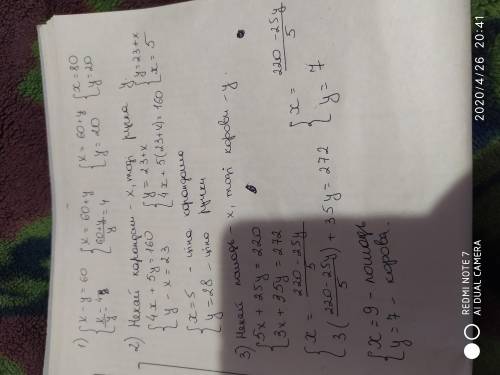 1) {x-y=60 {x=60+y {x=60+y {x=80
x/y=4 (60+y)/y=4 y=20 y=20
2) Нехай карандаш - x, тоді ручка y.
{4x+5y=160 {y=23+x {y=23+x
y-x=23 4x+5(23+x)=160 x=5
{x=5 - ціна карандаша
y=28 - ціна ручки
3) Нехай лошадь - x, тоді корови - y.
{5x+25y=220
3x+35y=272
{x=(220-25y)/5 {x=(220-25y)/5
3((220-25y)/5)+35y=272 y=7
{x=9 - лошадь
y=7 - корова.
REDMI NOTE 7
AI DUAL CAMERA
2020/4/26 20:41